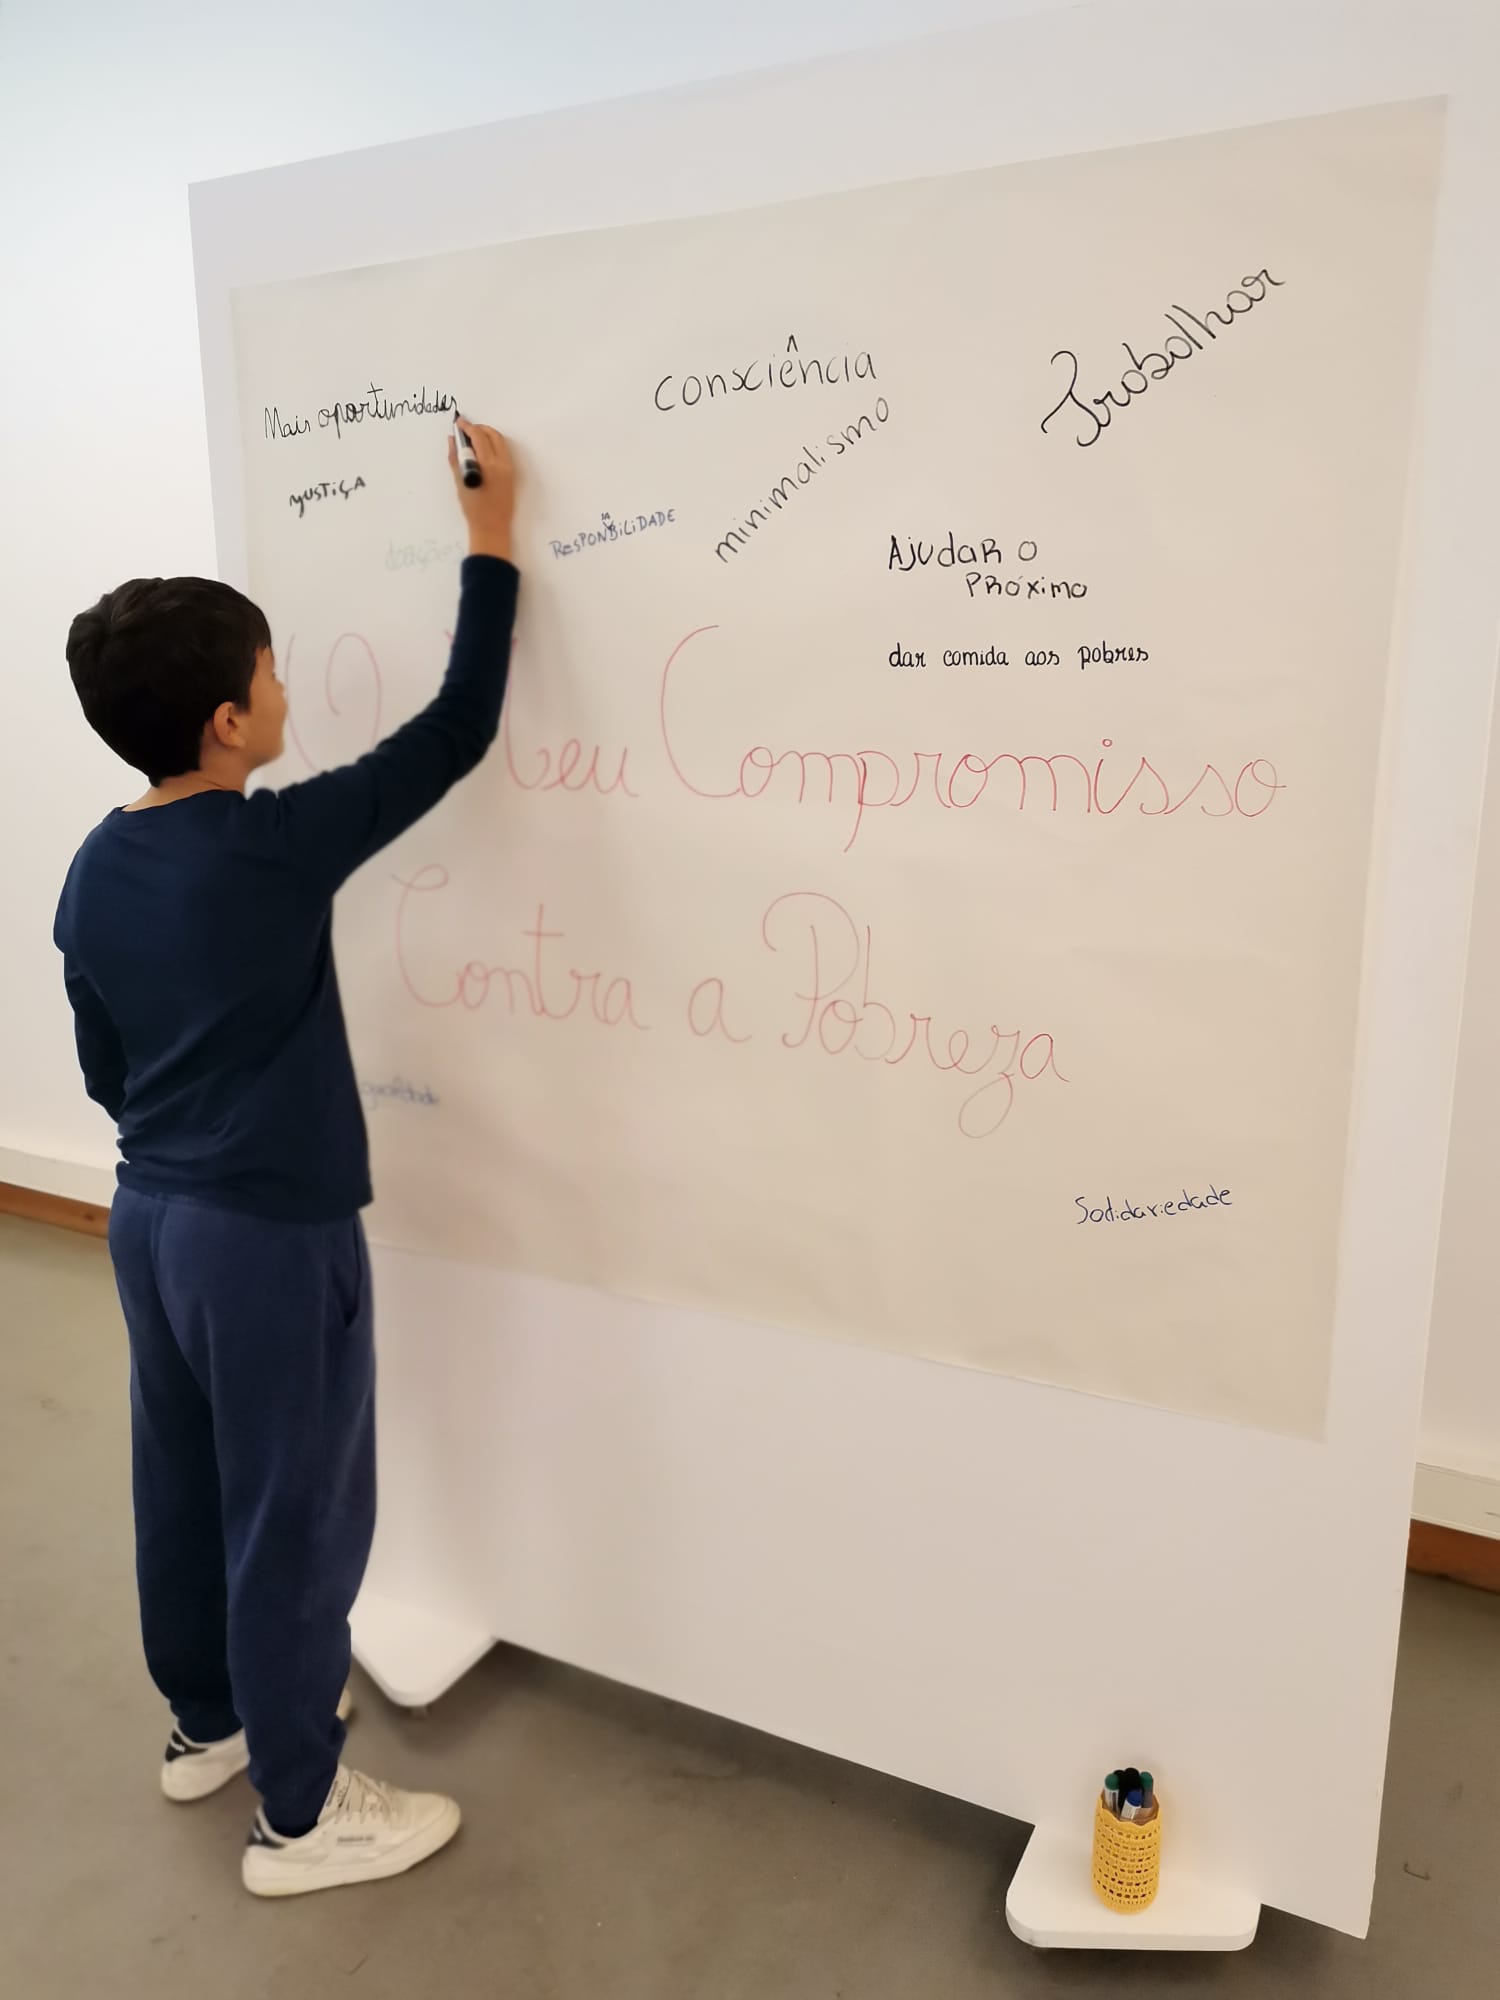 Mais oportunidades
consciência
Trabalhar
JUSTiÇA
minimalismo
doações
ResPONSABiLiDADE
AJudaR o
PRóximo
dar comida aos pobres
O Meu Compromisso
Contra a Pobreza
Solidariedade